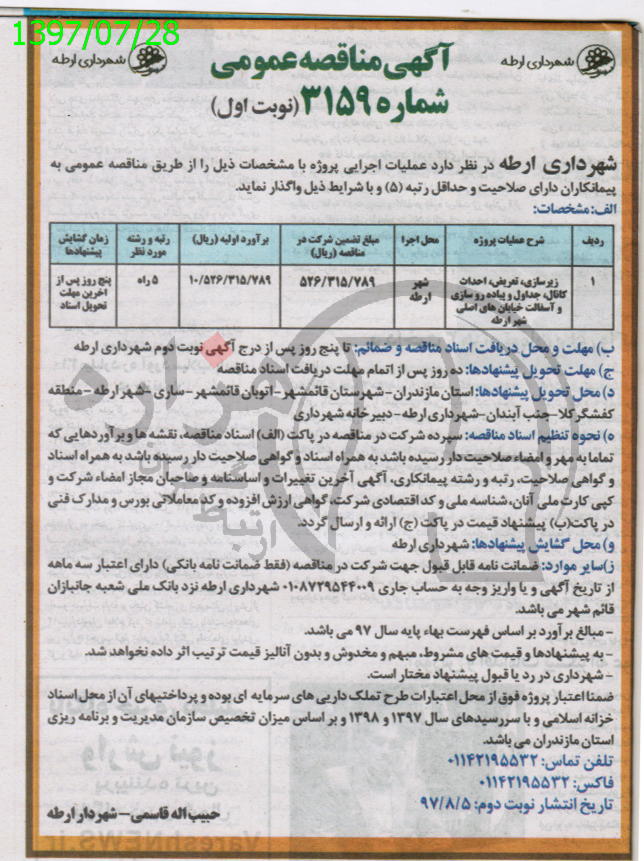 1397/07/28
شهرداری ارطه
آگهی مناقصه عمومی
شهرداری ارطه
شماره ۳۱۵۹ (نوبت اول)
شهرداری ارطه در نظر دارد عملیات اجرایی پروژه با مشخصات ذیل را از طریق مناقصه عمومی به
پیمانکاران دارای صلاحیت و حداقل رتبه (۵) و با شرایط ذیل واگذار نماید.
الف: مشخصات:
ردیف شرح عملیات پروژه محل اجرا مبلغ تضمین شرکت در مناقصه (ریال) برآورد اولیه (ریال) رتبه و رشته مورد نظر زمان گشایش پیشنهادها
۱ زیرسازی، تعریض، احداث کانال، جداول و پیاده رو سازی و آسفالت خیابان های اصلی شهر ارطه شهر ارطه ۵۲۶/۳۱۵/۷۸۹ ۱۰/۵۲۶/۳۱۵/۷۸۹ ۵ راه پنج روز پس از آخرین مهلت تحویل اسناد
ب) مهلت و محل دریافت اسناد مناقصه و ضمائم: تا پنج روز پس از درج آگهی نوبت دوم شهرداری ارطه
ج) مهلت تحویل پیشنهادها: ده روز پس از اتمام مهلت دریافت اسناد مناقصه
د) محل تحویل پیشنهادها: استان مازندران- شهرستان قائمشهر- اتوبان قائمشهر- ساری- شهر ارطه- منطقه
کفشگرکلا- جنب آبندان- شهرداری ارطه- دبیرخانه شهرداری
ه) نحوه تنظیم اسناد مناقصه: سپرده شرکت در مناقصه در پاکت (الف) اسناد مناقصه، نقشه ها و برآوردهایی که
تماما به مهر و امضاء صلاحیت دار رسیده باشد به همراه اسناد و گواهی صلاحیت دار رسیده باشد به همراه اسناد
و گواهی صلاحیت، رتبه و رشته پیمانکاری، آگهی آخرین تغییرات و اساسنامه و صاحبان مجاز امضاء شرکت و
کپی کارت ملی آنان، شناسه ملی و کد اقتصادی شرکت، گواهی ارزش افزوده و کد معاملاتی بورس و مدارک فنی
در پاکت(ب) پیشنهاد قیمت در پاکت (ج) ارائه و ارسال گردد.
و) محل گشایش پیشنهادها: شهرداری ارطه
ز)سایر موارد: ضمانت نامه قابل قبول جهت شرکت در مناقصه (فقط ضمانت نامه بانکی) دارای اعتبار سه ماهه
از تاریخ آگهی و یا واریز وجه به حساب جاری ۰۱۰۸۷۲۹۵۴۴۰۰۹ شهرداری ارطه نزد بانک ملی شعبه جانبازان
قائم شهر می باشد.
- مبالغ برآورد بر اساس فهرست بهاء پایه سال ۹۷ می باشد.
- به پیشنهادها و قیمت های مشروط، مبهم و مخدوش و بدون آنالیز قیمت ترتیب اثر داده نخواهد شد.
- شهرداری در رد یا قبول پیشنهاد مختار است.
ضمنا اعتبار پروژه فوق از محل اعتبارات طرح تملک داریی های سرمایه ای بوده و پرداختیهای آن از محل اسناد
خزانه اسلامی و با سررسیدهای سال ۱۳۹۷ و ۱۳۹۸ و بر اساس میزان تخصیص سازمان مدیریت و برنامه ریزی
استان مازندران می باشد.
تلفن تماس: ۰۱۱۴۲۱۹۵۵۳۲
فاکس: ۰۱۱۴۲۱۹۵۵۳۲
تاریخ انتشار نوبت دوم: ۹۷/۸/۵
حبیب اله قاسمی- شهردار ارطه